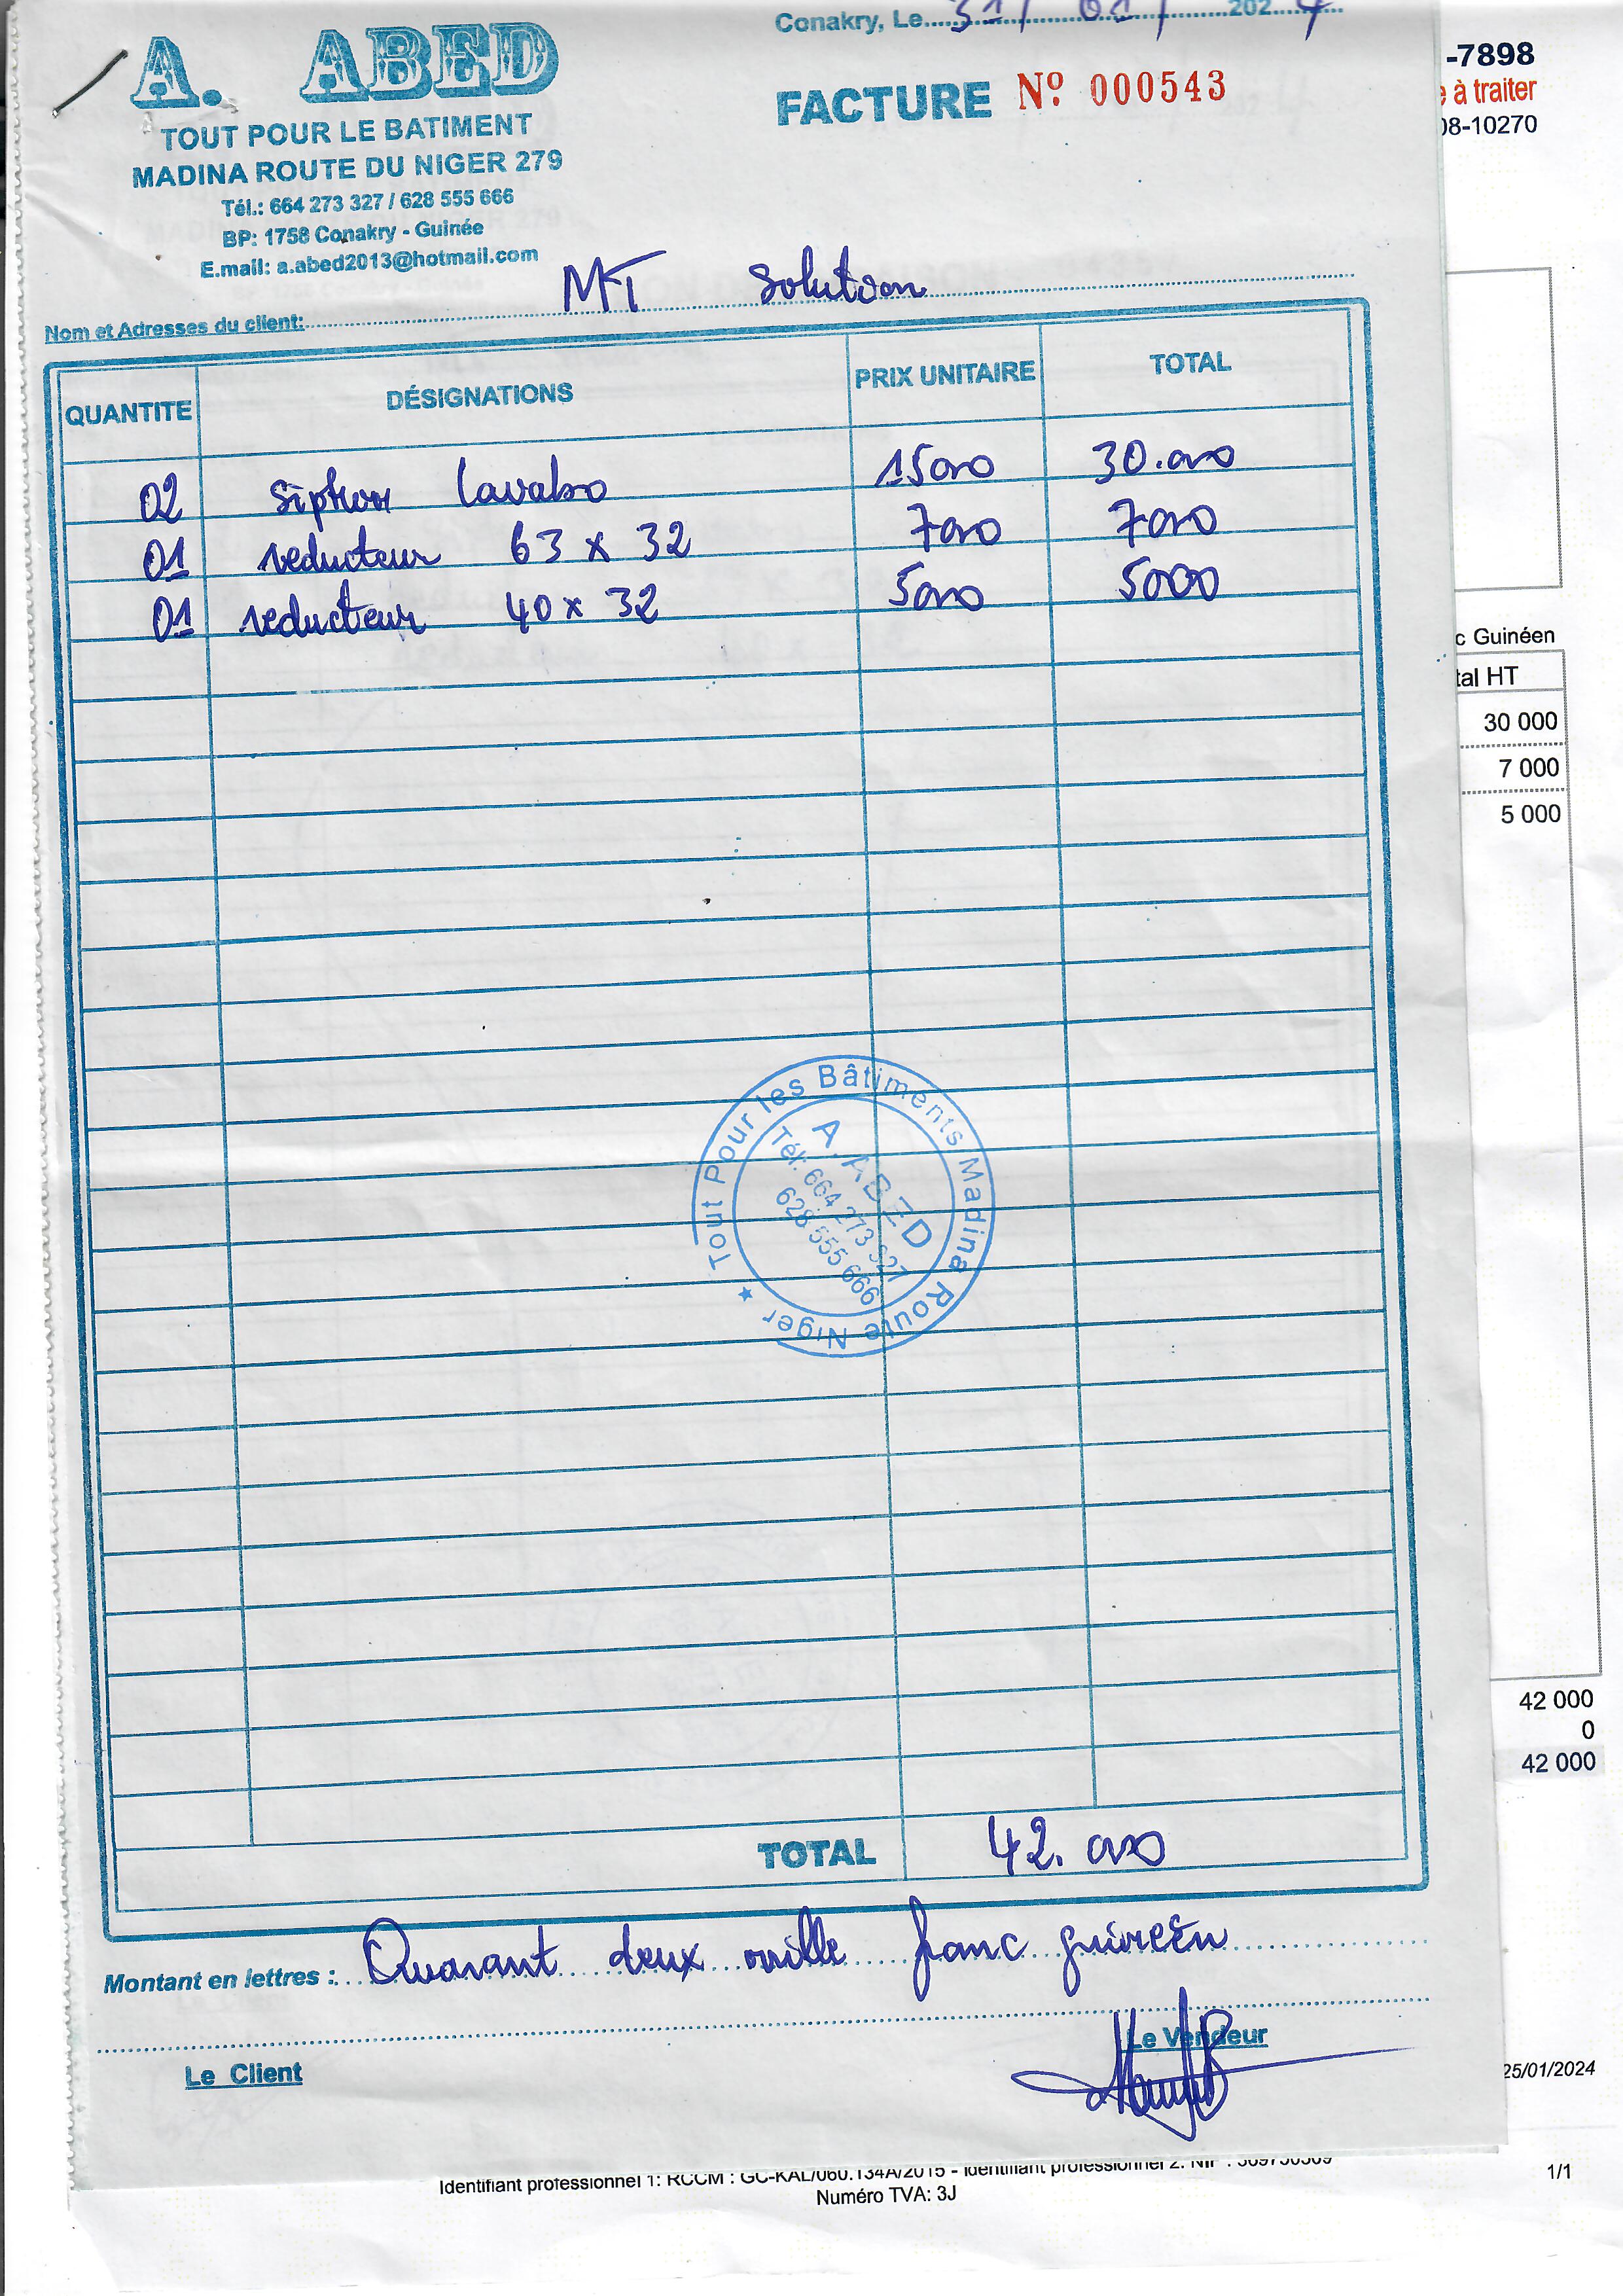 Conakry, Le 31/ 01/ 2024
A. ABED
FACTURE Nº 000543
TOUT POUR LE BATIMENT
MADINA ROUTE DU NIGER 279
Tél.: 664 273 327 / 628 555 666
BP: 1758 Conakry - Guinée
E.mail: a.abed2013@hotmail.com
Nom et Adresses du client: MT Solution
QUANTITE DÉSIGNATIONS PRIX UNITAIRE TOTAL
02 Siphon lavabo 15000 30.000
01 reducteur 63 x 32 7000 7000
01 reducteur 40 x 32 5000 5000
Tout Pour les Bâtiments Madina Route Niger ★
A. ABED
Tél: 664 273 327
628 555 666
TOTAL 42.000
Montant en lettres : Quarant deux mille franc guineén
Le Client
Le Vendeur
-7898
à traiter
08-10270
Guinéen
HT
30 000
7 000
5 000
42 000
0
42 000
25/01/2024
Identifiant professionnel 1: RCCM : GC-KAL/060.134A/2015 - Identifiant professionnel 2: NIF :
1/1
Numéro TVA: 3J